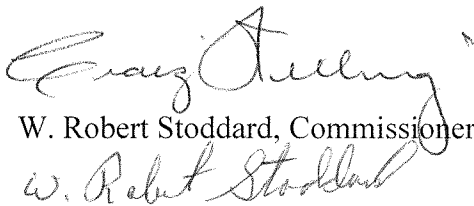 Craig
W. Robert Stoddard, Commissioner
W. Robert Stoddard